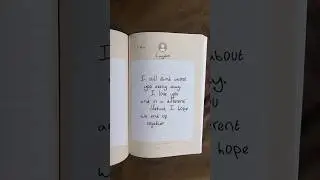 I still think about
you every day.
I love you
and in a different
lifetime I hope
we end up
together
about
y.
u
erent
hope